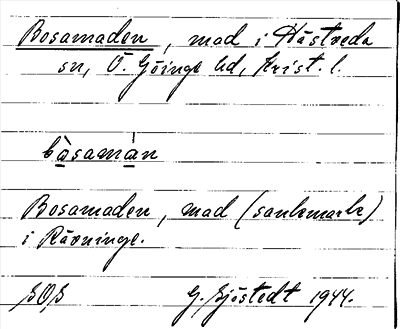 Bosamaden, mad i Hästveda
sn, Ö. Göinge hd, Krist. l.
bo̠samàn
Bosamaden, mad (sankmark)
i Rävninge.
SOS G. Sjöstedt 1944.